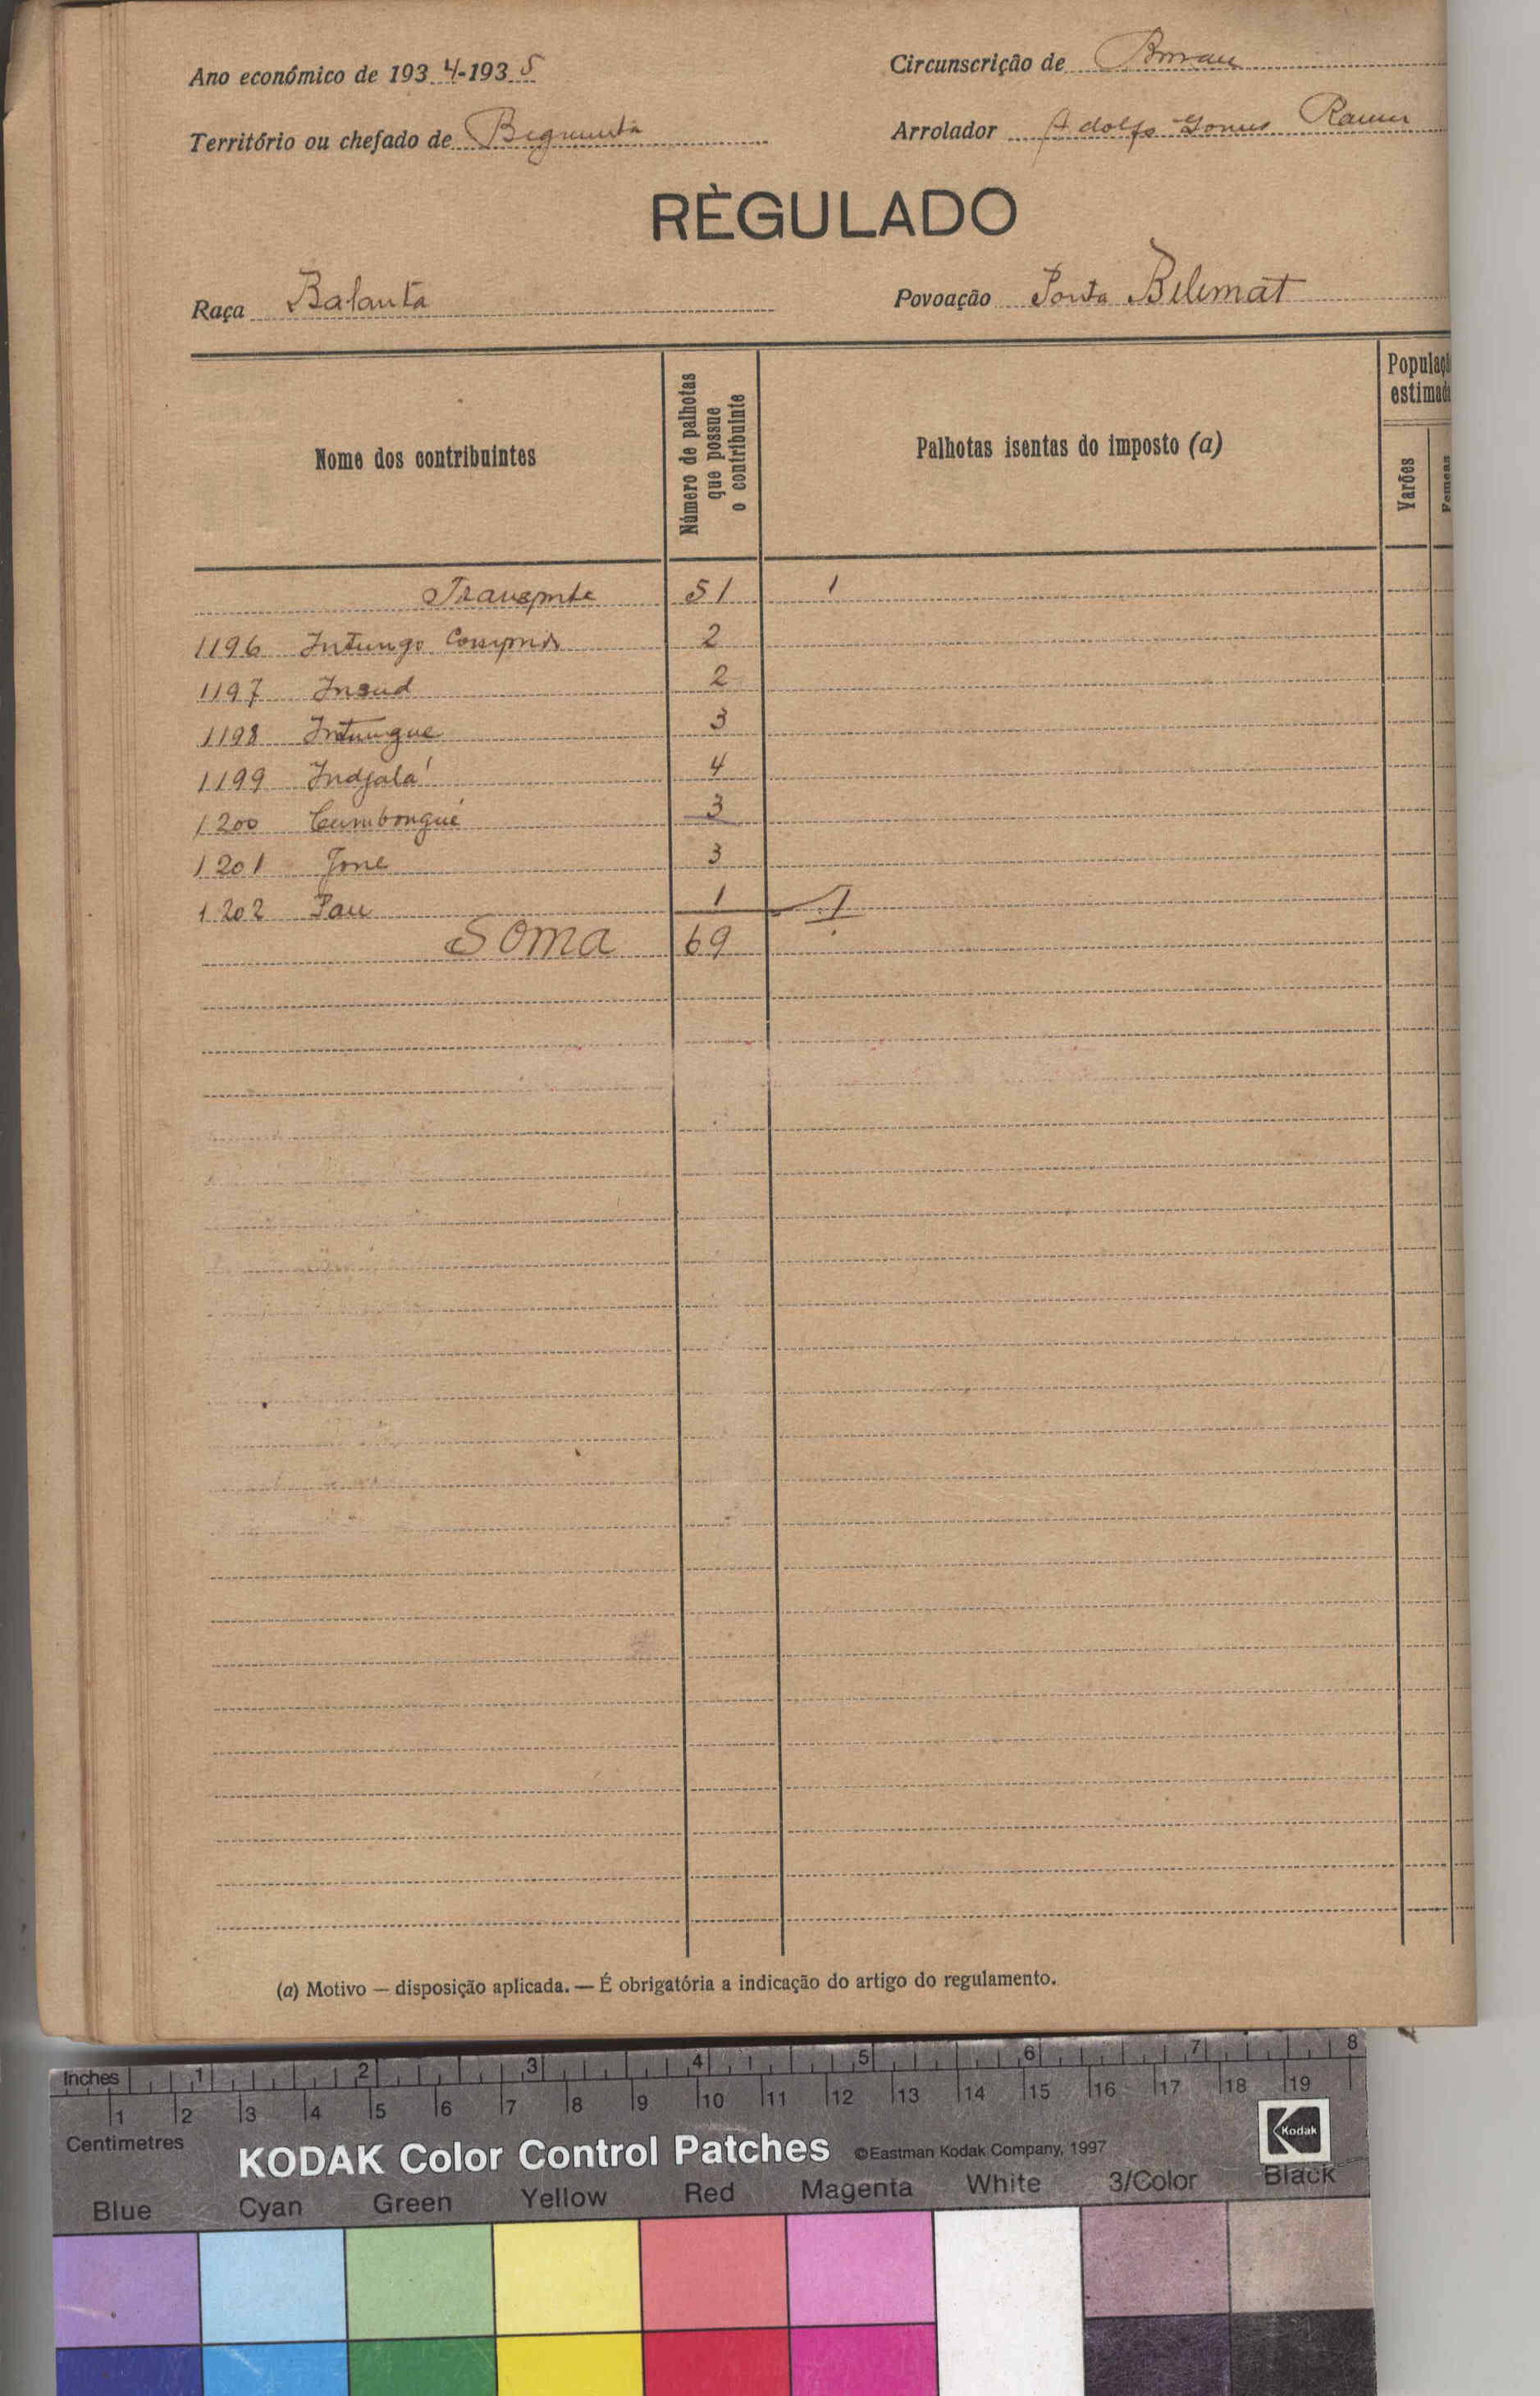 Ano económico de 1934-1935
Circunscrição de
Território ou chefado de
Arrolador Adolfo Gomes Ramos
RÈGULADO
Raça Balanta
Povoação Ponta Bilimat
Nome dos contribuintes
Número de palhotas que possue o contribuinte
Palhotas isentas do imposto (a)
Populaçã estimada
Varões
Femeas
Transporte 51 1
1196 Intungo 2
1197 Insud 2
1198 Intungue 3
1199 Indjalá 4
1200 Cumbongué 3
1201 Jone 3
1202 Pau 1 1
Soma 69
(a) Motivo — disposição aplicada. — É obrigatória a indicação do artigo do regulamento.
Inches 1 2 3 4 5 6 7 8
1 2 3 4 5 6 7 8 9 10 11 12 13 14 15 16 17 18 19
Centimetres
KODAK Color Control Patches ©Eastman Kodak Company, 1997
Kodak
Blue Cyan Green Yellow Red Magenta White 3/Color Black